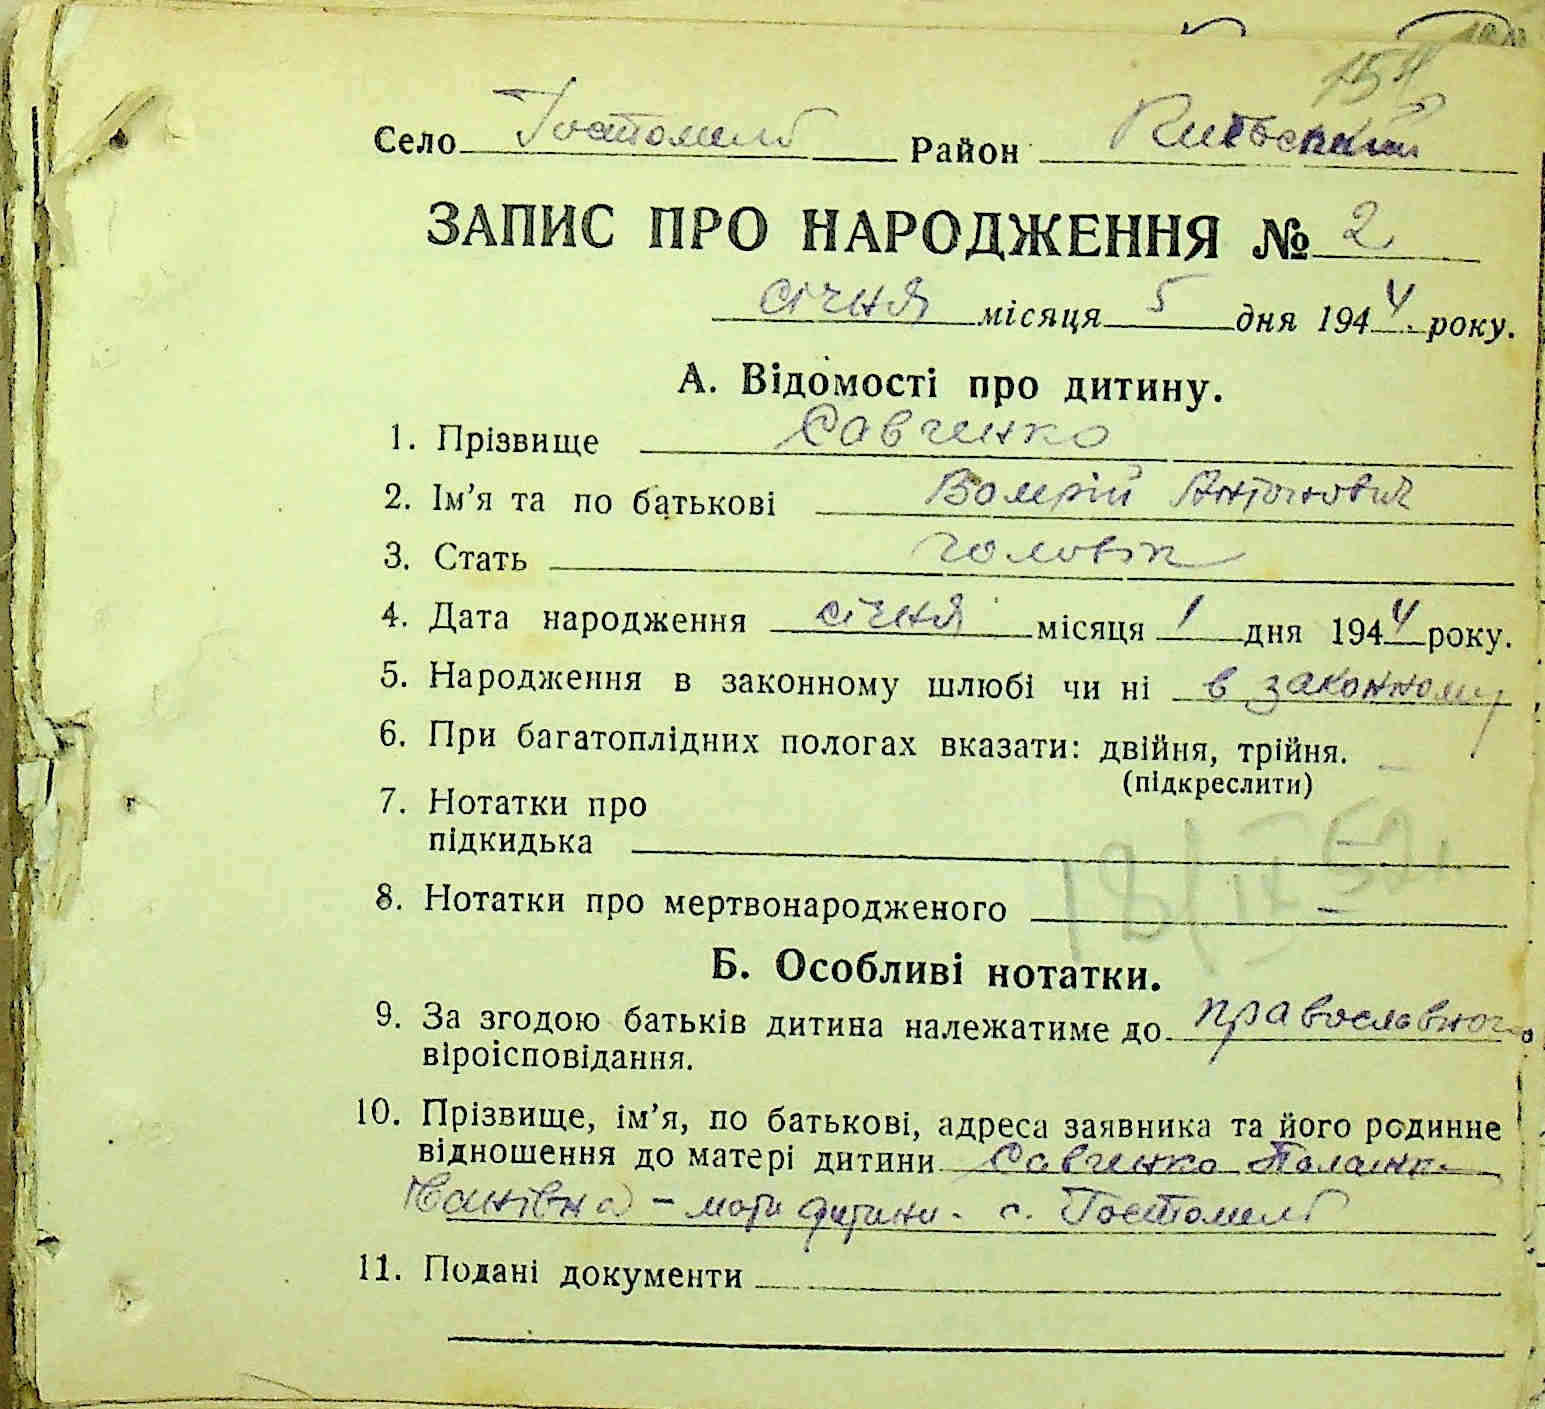 Село Гостомель Район Київський
ЗАПИС ПРО НАРОДЖЕННЯ № 2
січня місяця 5 дня 1944 року.
А. Відомості про дитину.
1. Прізвище Савченко
2. Ім’я та по батькові Валерій Антонович
3. Стать чоловік
4. Дата народження січня місяця 1 дня 1944 року.
5. Народження в законному шлюбі чи ні в законному
6. При багатоплідних пологах вказати: двійня, трійня. —
(підкреслити)
7. Нотатки про
підкидька
8. Нотатки про мертвонародженого —
18/IX 52г.
Б. Особливі нотатки.
9. За згодою батьків дитина належатиме до православного
віроісповідання.
10. Прізвище, ім’я, по батькові, адреса заявника та його родинне
відношення до матері дитини Савченко
Іванівна – мати дитини. с. Гостомель
11. Подані документи